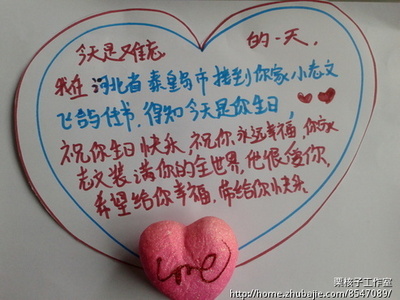 今天是难忘 的一天,
我在 河北省 秦皇岛市 接到你家小志文
飞鸽传书, 得知 今天是你生日,
祝你生日快乐 祝你永远幸福, 你家
志文装满你的全世界, 他很爱你,
希望给你幸福, 带给你快乐
Love
栗核子工作室
http://home.zhubajie.com/8547089/